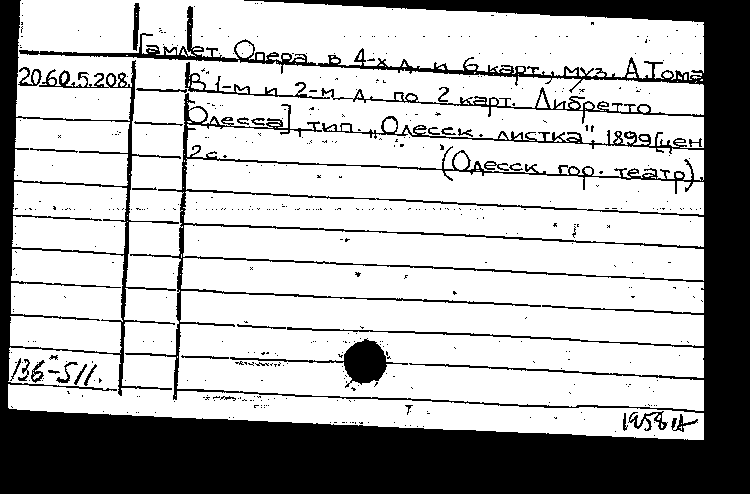 Гамлет. Опера в 4-х д. и 6 карт., муз. А. Тома
20.60.5.208. В 1-м и 2-м д. по 2 карт. Либретто
Одесса], тип. „Одесск. листка", 1899 [цен
2 с. (Одесск. гор. театр).
136-511.